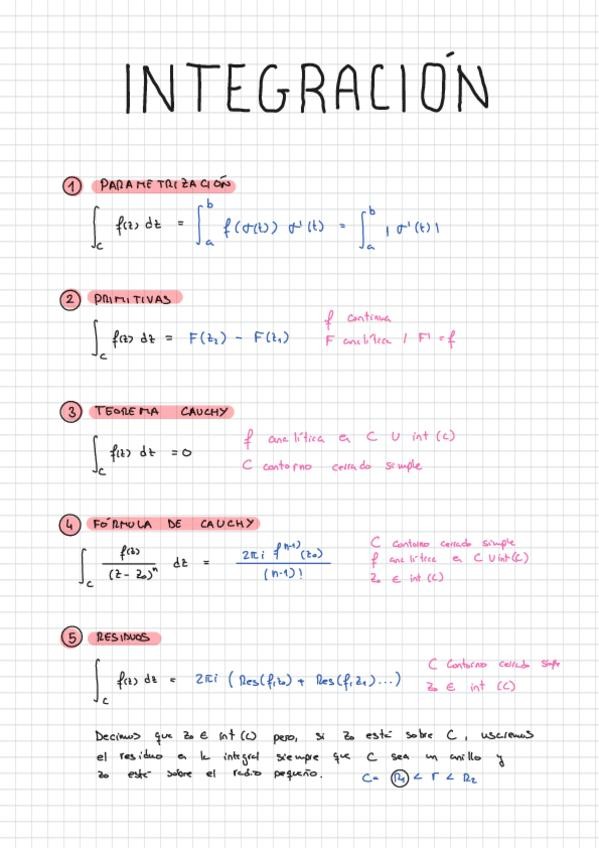 INTEGRACIÓN
1 PARAMETRIZACIÓN
∫_C f(z) dz = ∫_a^b f(σ(t)) σ'(t) = ∫_a^b |σ'(t)|
2 PRIMITIVAS
∫_C f(z) dz = F(z₂) - F(z₁)
f continua
F analítica / F' = f
3 TEOREMA CAUCHY
∫_C f(z) dz = 0
f analítica en C ∪ int (C)
C contorno cerrado simple
4 FÓRMULA DE CAUCHY
∫_C f(z) / (z - z₀)^n dz = 2πi f^(n-1) (z₀) / (n-1)!
C contorno cerrado simple
f analítica en C ∪ int(C)
z₀ ∈ int (C)
5 RESIDUOS
∫_C f(z) dz = 2πi ( Res(f,z₀) + Res(f,z₁)...)
C contorno cerrado simple
z₀ ∈ int (C)
Decimos que z₀ ∈ int (C) pero, si z₀ está sobre C, usaremos
el residuo en la integral siempre que C sea un anillo y
z₀ esté sobre el radio pequeño. C = R₁ < r < R₂